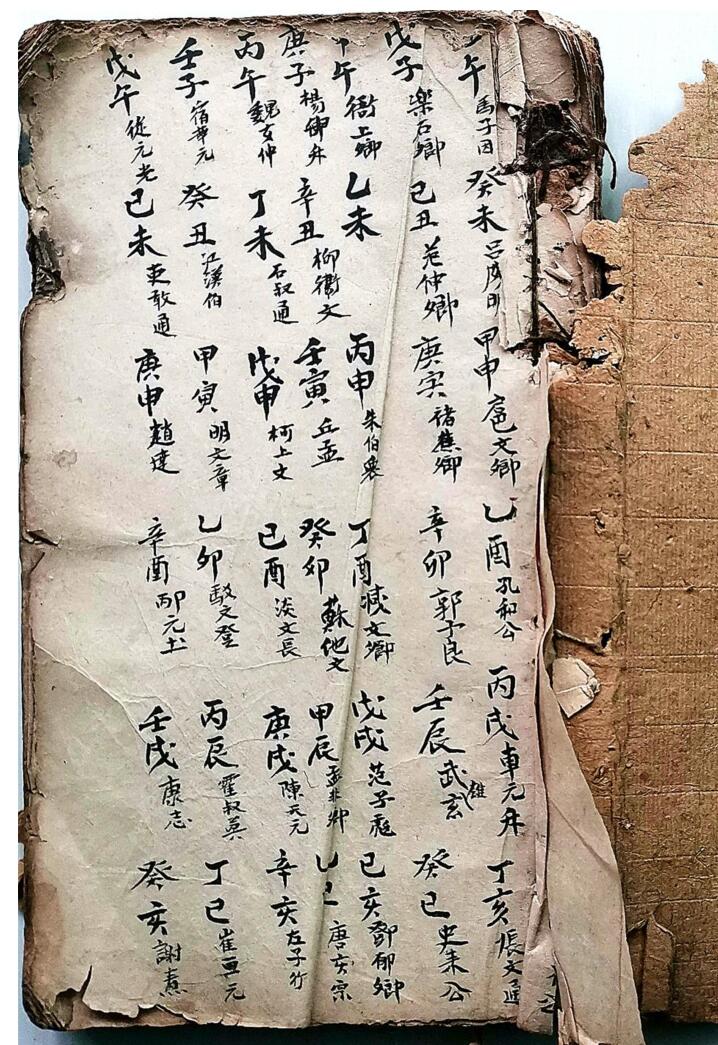 午馬子因 癸未呂彦明 甲申扈文卿 乙酉孔和公 丙戌車元升 丁亥張文通
戊子樂石卿 己丑范仲卿 庚寅褚蕉卿 辛卯郭子良 壬辰武玄 癸巳史耒公
午衛上卿 乙未 丙申朱伯衆 丁酉臧文卿 戊戌范子彪 己亥鄧郁卿
庚子楊仰升 辛丑柳衛文 壬寅丘孟 癸卯蘇他文 甲辰孟非卿 乙巳唐亥宗
丙午魏亥仲 丁未石叔通 戊申柯上文 己酉淡文長 庚戌陳天元 辛亥左子竹
壬子宿華元 癸丑江漢伯 甲寅明文章 乙卯文登 丙辰霍叔英 丁巳崔亜元
戊午從元光 己未吏敢通 庚申趙達 辛酉邴元士 壬戌康志 癸亥謝燾